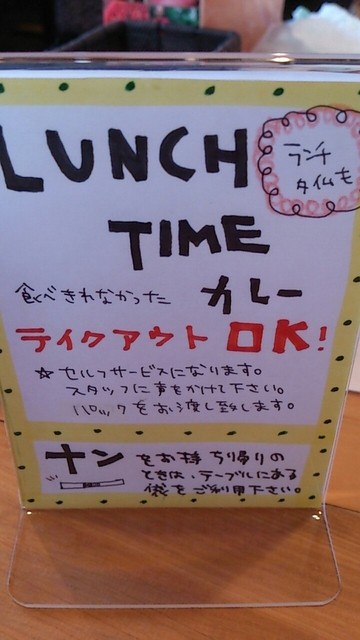 LUNCH
ランチ
タイムも
TIME
食べきれなかった カレー
テイクアウト OK!
☆ セルフサービスになります。
スタッフに声をかけて下さい。
パックをお渡し致します。
ナン をお持ち帰りの
ときは、テーブルにある
袋をご利用下さい。